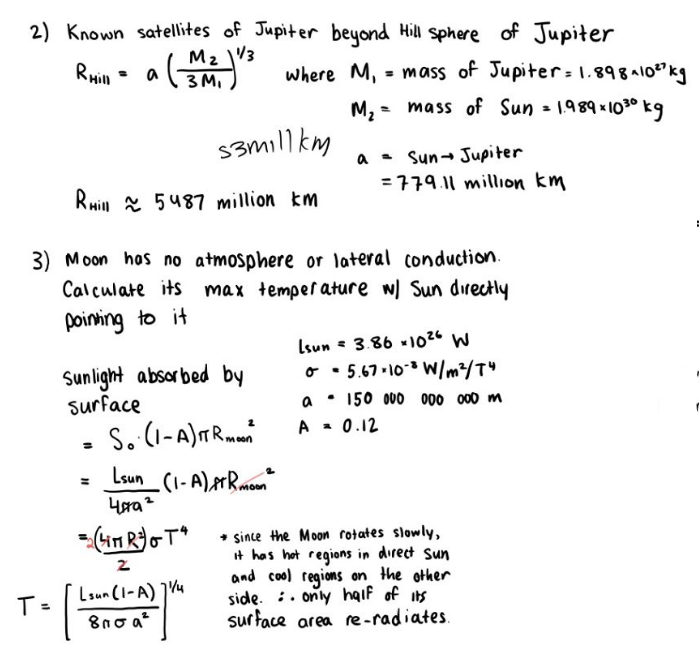 2) Known satellites of Jupiter beyond Hill sphere of Jupiter
R_Hill = a (M₂/3M₁)^1/3 where M₁ = mass of Jupiter = 1.898×10²⁷ kg
M₂ = mass of Sun = 1.989×10³⁰ kg
53mill km
a = Sun → Jupiter
= 779.11 million km
R_Hill ≈ 5487 million km
3) Moon has no atmosphere or lateral conduction.
Calculate its max temperature w/ Sun directly
pointing to it
Lsun = 3.86 ×10²⁶ W
σ = 5.67×10⁻⁸ W/m²/T⁴
a = 150 000 000 000 m
A = 0.12
Sunlight absorbed by
surface
= S₀·(1-A)πR_moon²
= Lsun/4πa² (1-A)πR_moon²
= 2(4πR²)/2 σT⁴
* since the Moon rotates slowly,
it has hot regions in direct sun
and cool regions on the other
side. ∴ only half of its
surface area re-radiates.
T = [Lsun(1-A)/8πσa²]^1/4